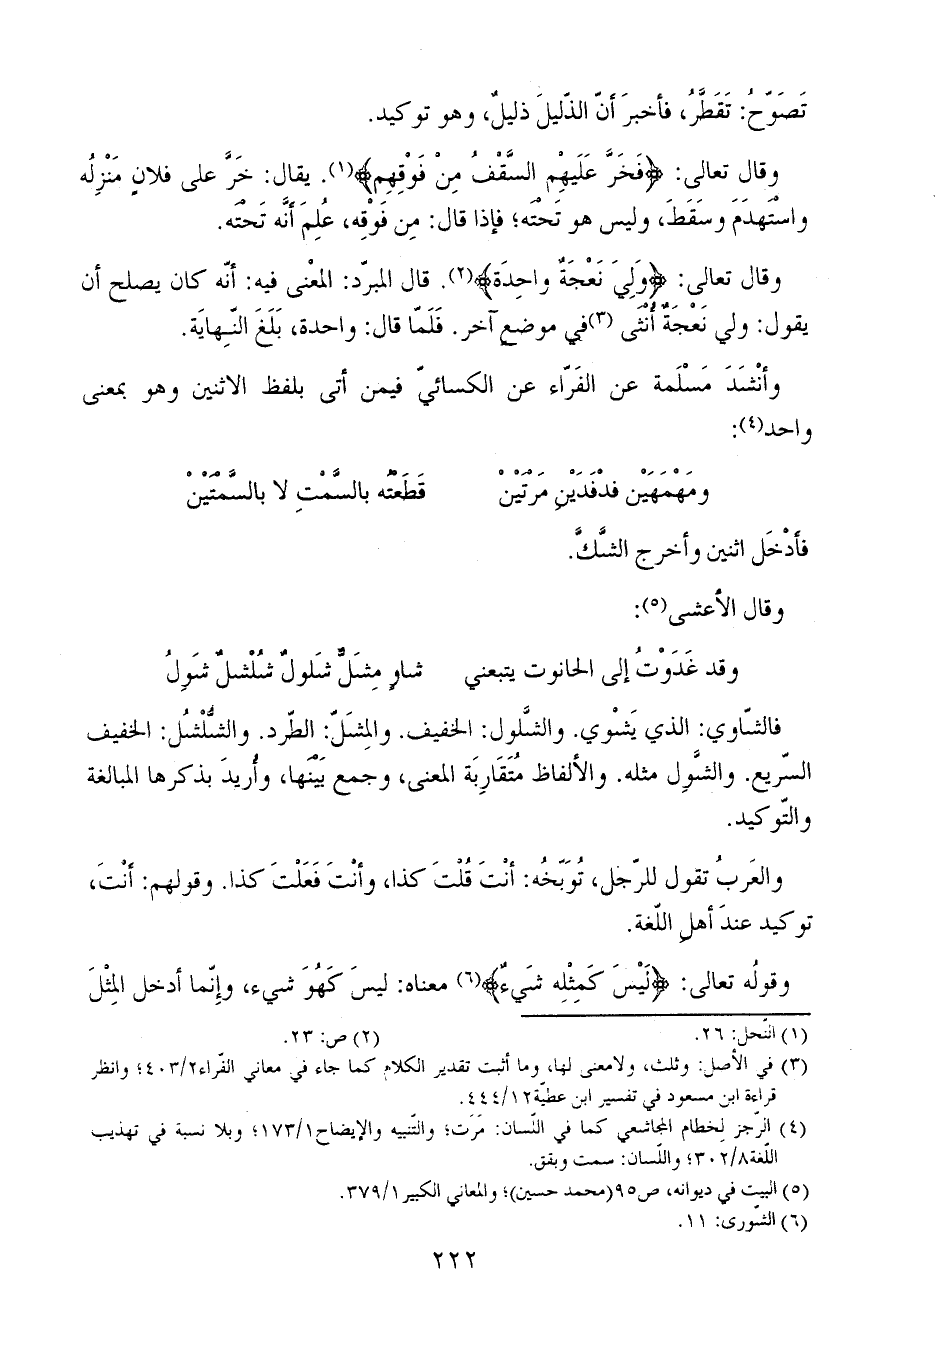 تَصَوَّحُ: تَقَطَّرُ، فأخبرَ أنّ الذّليلَ ذليلٌ، وهو توكيد.
وقال تعالى: ﴿فَخَرَّ عَلَيْهِم السَّقْفُ مِنْ فَوْقِهِم﴾(١). يقال: خَرَّ على فلانٍ مَنْزِلُه
واسْتَهدَمَ وسَقَطَ، وليس هو تَحتْه؛ فإذا قال: مِن فَوْقِه، عُلِمَ أنَّه تَحتَه.
وقال تعالى: ﴿وَلَيَ نَعْجَةٌ واحِدَة﴾(٢). قال المبرّد: المعْنى فيه: أنّه كان يصلح أن
يقول: ولي نَعْجَةٌ أُنْثَى (٣)في موضعٍ آخر. فَلَمّا قال: واحدة، بَلَغَ النّهايَة.
وأنْشَدَ مَسْلَمة عن الفَرّاء عن الكسائيّ فيمن أتى بلفظ الاثنين وهو بمعنى
واحد(٤):
ومَهْمَهَيْن فدفَدَيْنِ مَرْتَيْنْ قَطَعْتُه بالسَّمْتِ لا بالسَّمْتَيْنْ
فأدْخَل اثنين وأخرج الشَّكَّ.
وقال الأعشى(٥):
وقد غَدَوْتُ إلى الحانوت يتبعني شاوٍ مِشَلٌّ شَلولٌ شُلْشلٌ شَوِلُ
فالشّاوي: الذي يَشْوي. والشَّلول: الخفيف. والمِشَلّ: الطّرد. والشُّلْشُل: الخفيف
السّريع. والشَّوِل مثله. والألفاظ مُتَقَارِبَة المعنى، وجمع بَيْنَها، وأُريدَ بذكرها المبالغة
والتّوكيد.
والعَربُ تقول للرّجل، تُوَبّخُه: أنْتَ قُلْتَ كذا، وأنْتَ فَعَلْتَ كذا. وقولهم: أنْتَ،
توكيد عندَ أهلِ اللّغة.
وقولُه تعالى: ﴿لَيْسَ كَمِثْلِه شَيءٌ﴾(٦) معناه: ليسَ كَهُوَ شيء، وإنّما أدخل المِثْلَ
(١) النّحل: ٢٦. (٢) ص: ٢٣.
(٣) في الأصل: وثلث، ولامعنى لها، وما أثبت تقدير الكلام كما جاء في معاني الفّراء٤٠٣/٢؛ وانظر
قراءة ابن مسعود في تفسير ابن عطيّة٤٤٤/١٢.
(٤) الرّجز لخطام المجاشعي كما في اللّسان: مَرَت؛ والتّنبيه والإيضاح١٧٣/١؛ وبلا نسبة في تهذيب
اللّغة٣٠٢/٨؛ واللّسان: سمت وبقق.
(٥) البيت في ديوانه، ص٩٥(محمد حسين)؛ والمعاني الكبير٣٧٩/١.
(٦) الشّورى: ١١.
٢٢٢